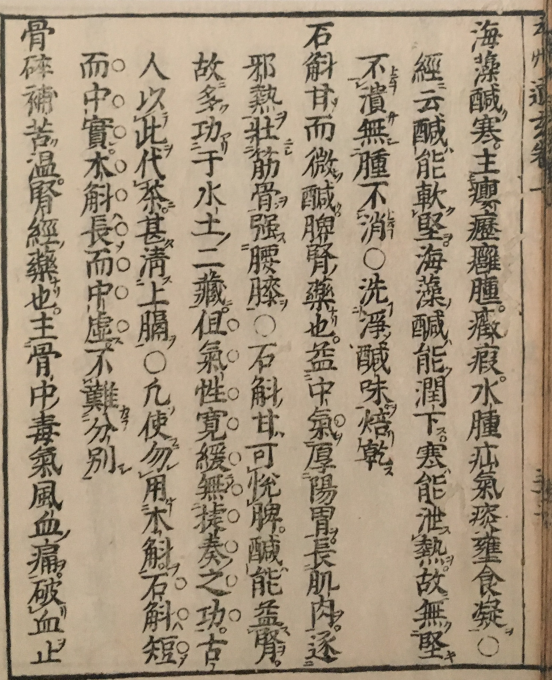 海藻醎寒主癭癧癰腫癥瘕水腫疝氣痰壅食凝〇
經云醎能軟堅海藻醎能潤下寒能泄熱故無堅
不潰無腫不消〇洗淨醎味焙乾
石斛甘而微醎脾腎藥也益中氣厚陽胃長肌肉逐
邪熱壯筋骨强腰膝〇石斛甘可悅脾醎能益腎
故多功于水土二藏但氣性寛緩無捷奏之功古
人以此代茶甚淸上膈〇凢使勿用木斛石斛短
而中實木斛長而中虛不難分別
骨碎補苦溫腎經藥也主骨中毒氣風血痛破血止